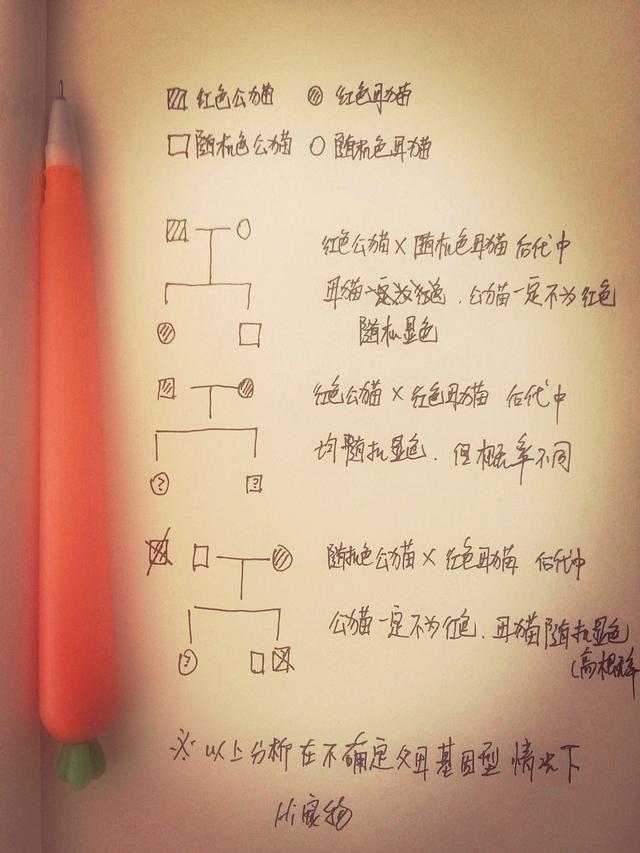 红色公猫 红色母猫
随机色公猫 随机色母猫
红色公猫×随机色母猫 后代中
母猫一定为红色.公猫一定不为红色
随机显色
红色公猫×红色母猫 后代中
均随机显色.但概率不同
? ?
随机色公猫×红色母猫 后代中
公猫一定不为红色.母猫随机显色
(高概率
?
※以上分析在不确定父母基因型情况下
Hi宠物